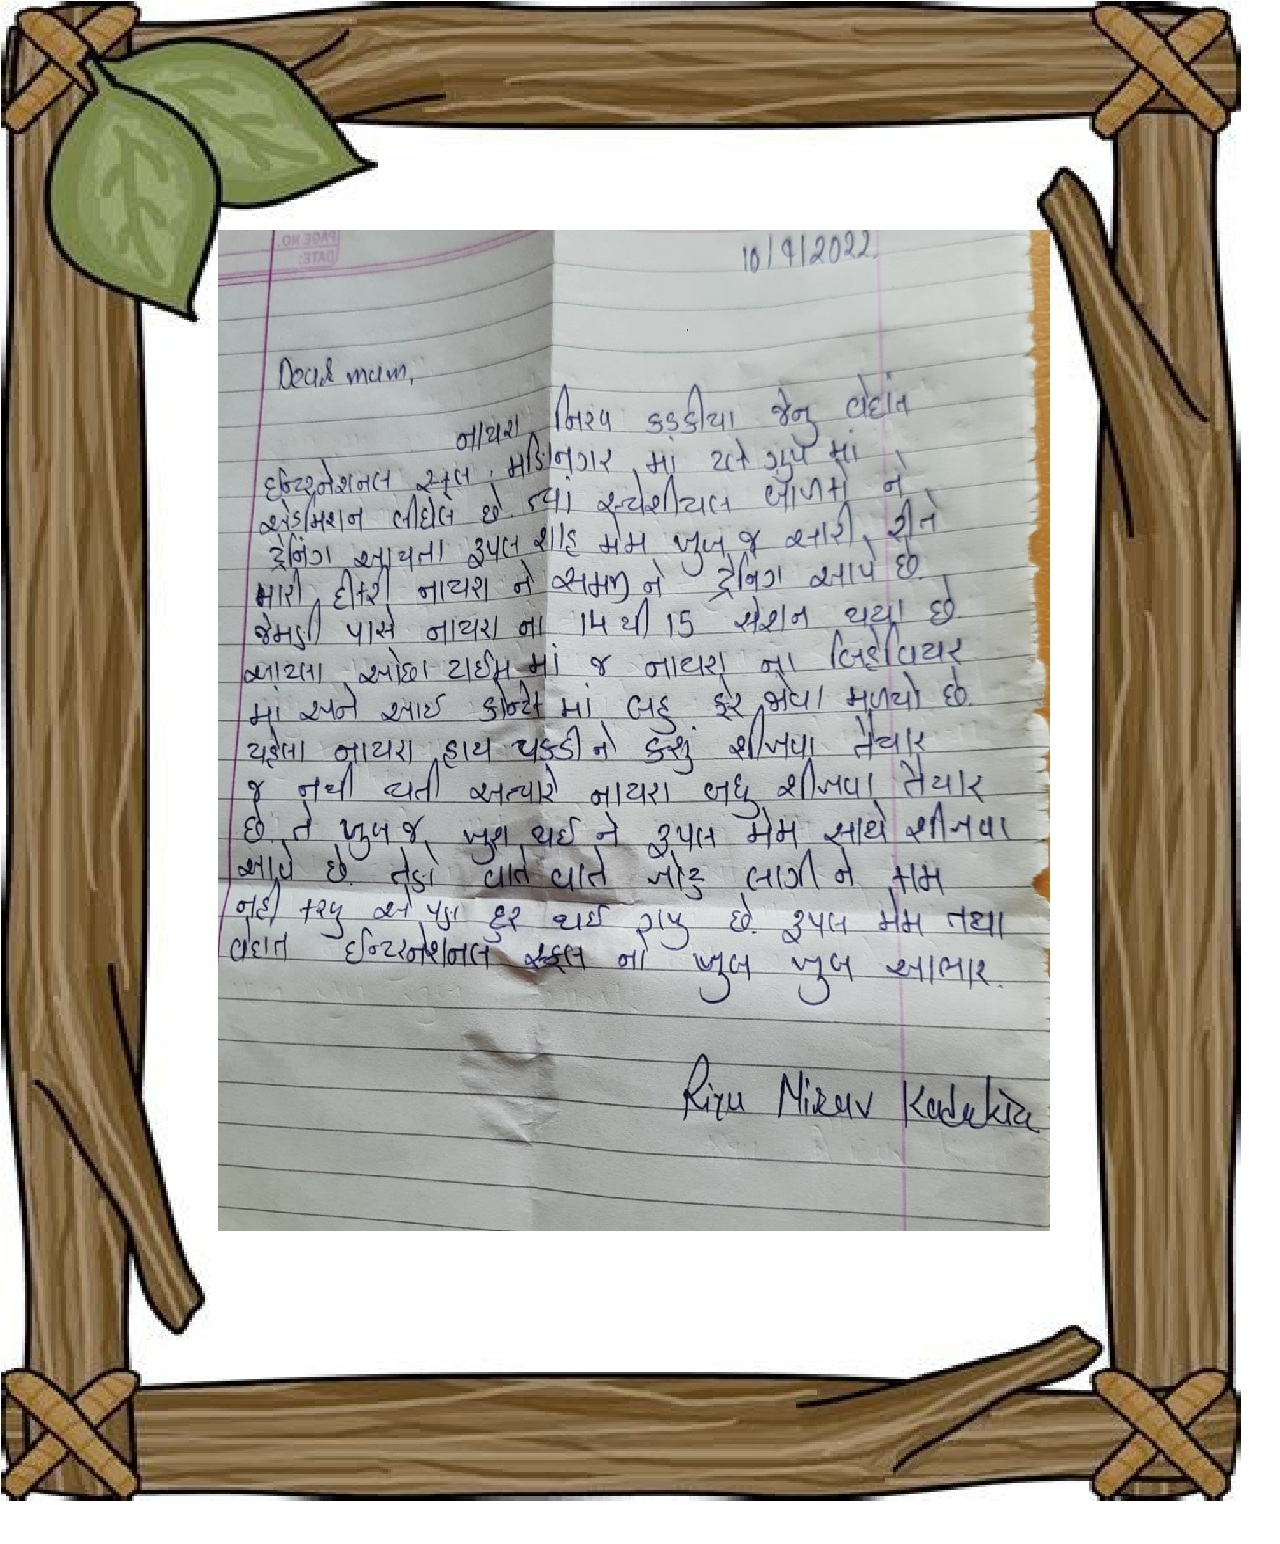 10/9/2022.
Dear mam,
નાયરા નિરવ કડકીયા જેનુ વેદાંત
ઈન્ટરનેશનલ સ્કૂલ, મણિનગર માં પ્લે ગ્રુપ માં
એડમિશન લીધેલ છે ત્યાં સ્પેશીયલ બાળકો ને
ટ્રેનિંગ આપતા રૂપલ શાહ મેમ ખુબ જ સારી રીતે
મારી દીકરી નાયરા ને સમજી ને ટ્રેનિંગ આપે છે.
જેમની પાસે નાયરા ના 14 થી 15 સેશન થયા છે
આટલા ઓછા ટાઈમ માં જ નાયરા ના બિહેવિયર
માં અને આઈ કોન્ટેક્ટ માં બહુ ફેર જોવા મળ્યો છે.
પહેલા નાયરા હાથ પકડી ને કશું શીખવા તૈયાર
જ નથી થતી અત્યારે નાયરા બધુ શીખવા તૈયાર
છે તે ખુબ જ ખુશ થઈ ને રૂપલ મેમ સાથે શીખવા
આવે છે. તેને વાતે વાતે ખોટુ લાગી ને કામ
નહી કરવુ એ પણ દુર થઈ ગયુ છે. રૂપલ મેમ તથા
વેદાંત ઈન્ટરનેશનલ સ્કૂલ નો ખુબ ખુબ આભાર.
Nirav Kadakia